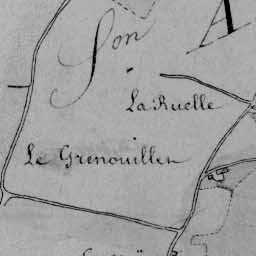 Son
A
La Ruelle
Le Grenouillet